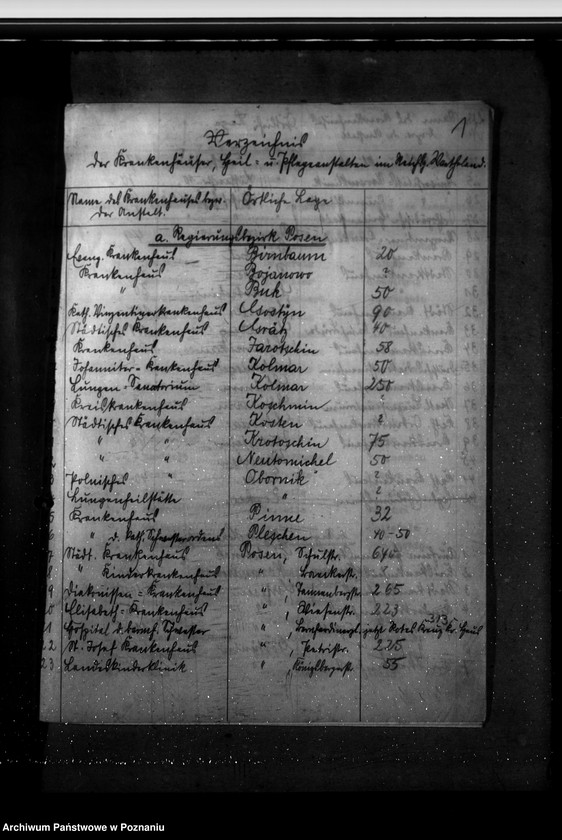 1
Verzeichnis
der Krankenhäuser, Heil- u. Pflegeanstalten im Reichsg. Wathland.
Name des Krankenhauses bzw. Örtliche Lage
der Anstalt.
a. Regierungsbezirk Posen
Evang. Krankenhaus Birnbaum 20
Krankenhaus Bojanowo ?
" Buk 50
Kath. Vinzentinerkrankenhaus Gostyn 90
Städtisches Krankenhaus Grätz 40
Krankenhaus Jarotschin 58
Johanniter-Krankenhaus Kolmar 50
Lungen-Sanatorium Kolmar 250
Kreiskrankenhaus Koschmin ?
Städtisches Krankenhaus Kosten ?
" " Krotoschin 75
" " Neutomichel 50
Polnisches " Obornik ?
Lungenheilstätte " ?
Krankenhaus Pinne 32
" d. kath. Schwesterordens Pleschen 40-50
7 Städt. Krankenhaus Posen, Schulstr. 640
8 " Kinderkrankenhaus " ?
9 Diakonissen-Krankenhaus " , Tannenbergstr. 265
0 Elisabeth-Krankenhaus " , Wiesenstr. 223
1 Hospital d. barmh. Schwester " , Bernhardinerpl. jetzt Rotes Kreuz Kr. Haus 313
22 St. Josef Krankenhaus " , Petristr. 225
23 Landeskinderklinik " , Königsbergerstr. 55
Archiwum Państwowe w Poznaniu